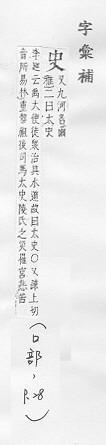 字彙補
史 又九河名爾
雅三曰太史
李廵云禹大使徒衆治其水道故曰太史〇又踈土切
音所易林重黎祖後司馬太史陵氏之災罹宮悲苦
(口部，P.28)